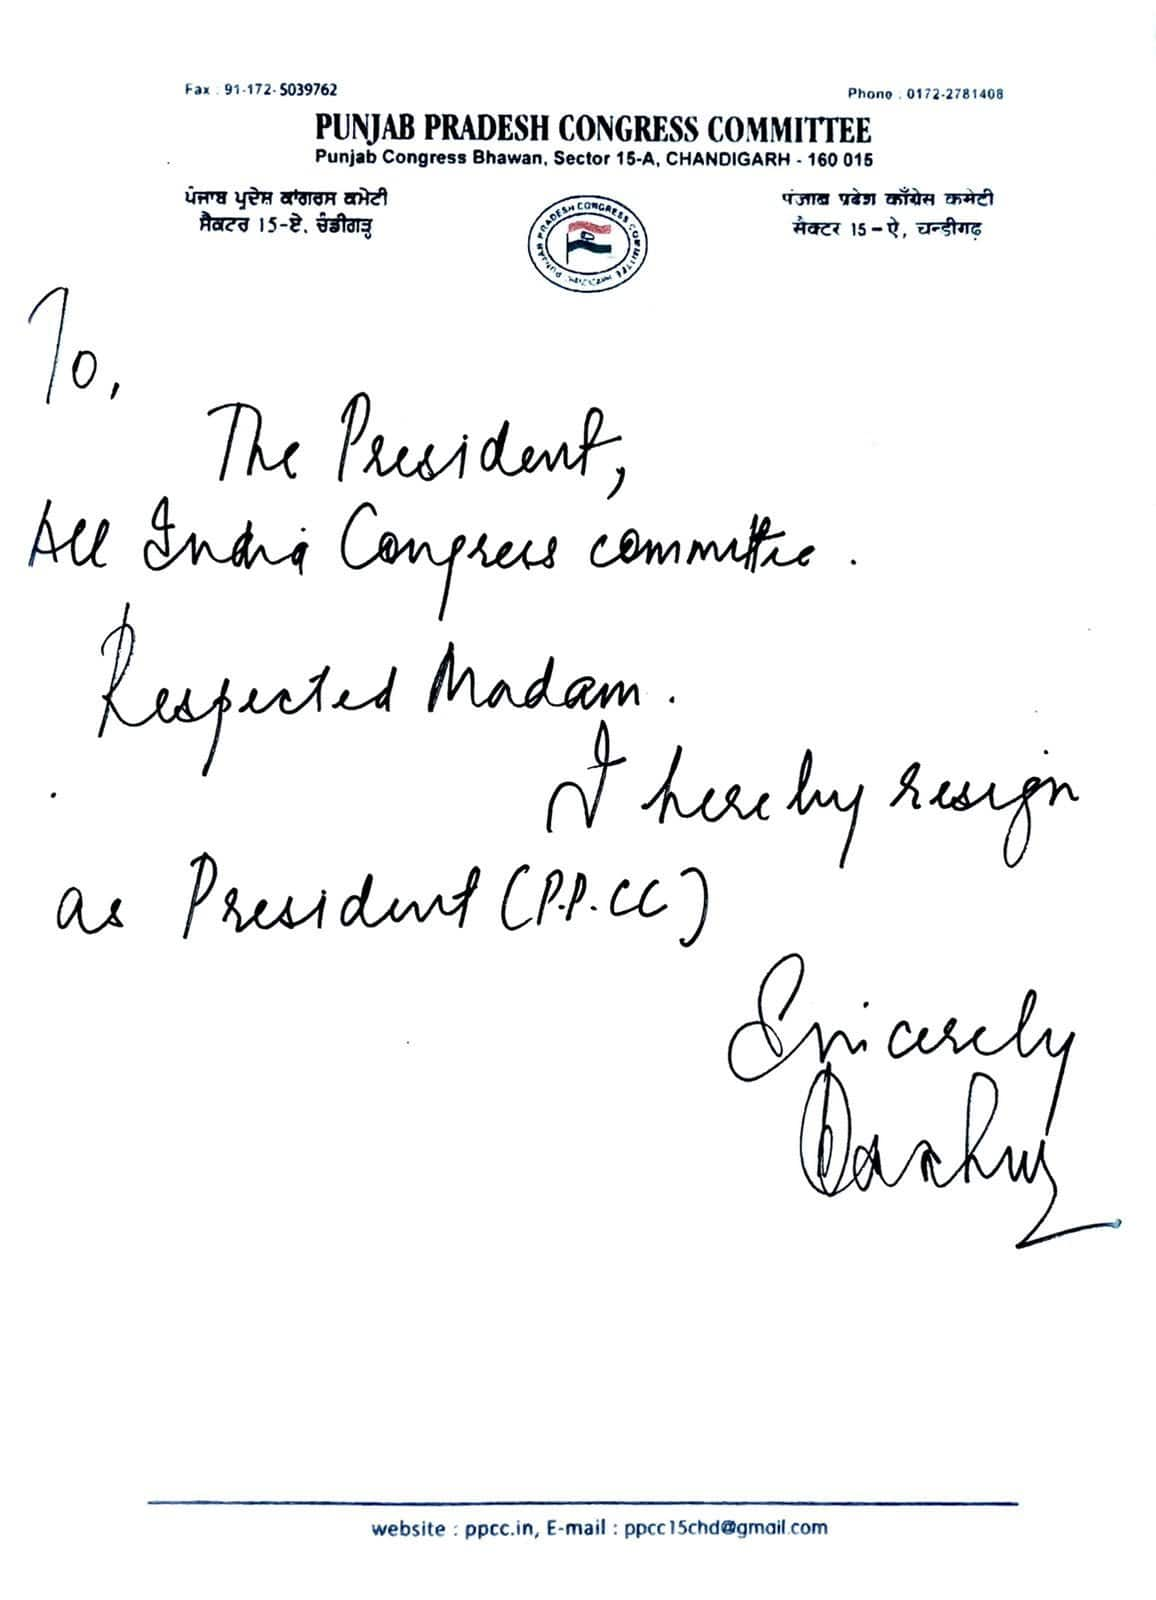 Fax : 91-172-5039762
Phone : 0172-2781408
PUNJAB PRADESH CONGRESS COMMITTEE
Punjab Congress Bhawan, Sector 15-A, CHANDIGARH - 160 015
ਪੰਜਾਬ ਪ੍ਰਦੇਸ਼ ਕਾਂਗਰਸ ਕਮੇਟੀ
ਸੈਕਟਰ 15-ਏ, ਚੰਡੀਗੜ੍ਹ
PUNJAB PRADESH CONGRESS COMMITTEE
CHANDIGARH
पंजाब प्रदेश काँग्रेस कमेटी
सैक्टर 15 - ऐ, चन्डीगढ़
To,
The President,
All India Congress committee.
Respected Madam.
I hereby resign
as President (P.P.CC)
Sincerely
website : ppcc.in, E-mail : ppcc15chd@gmail.com